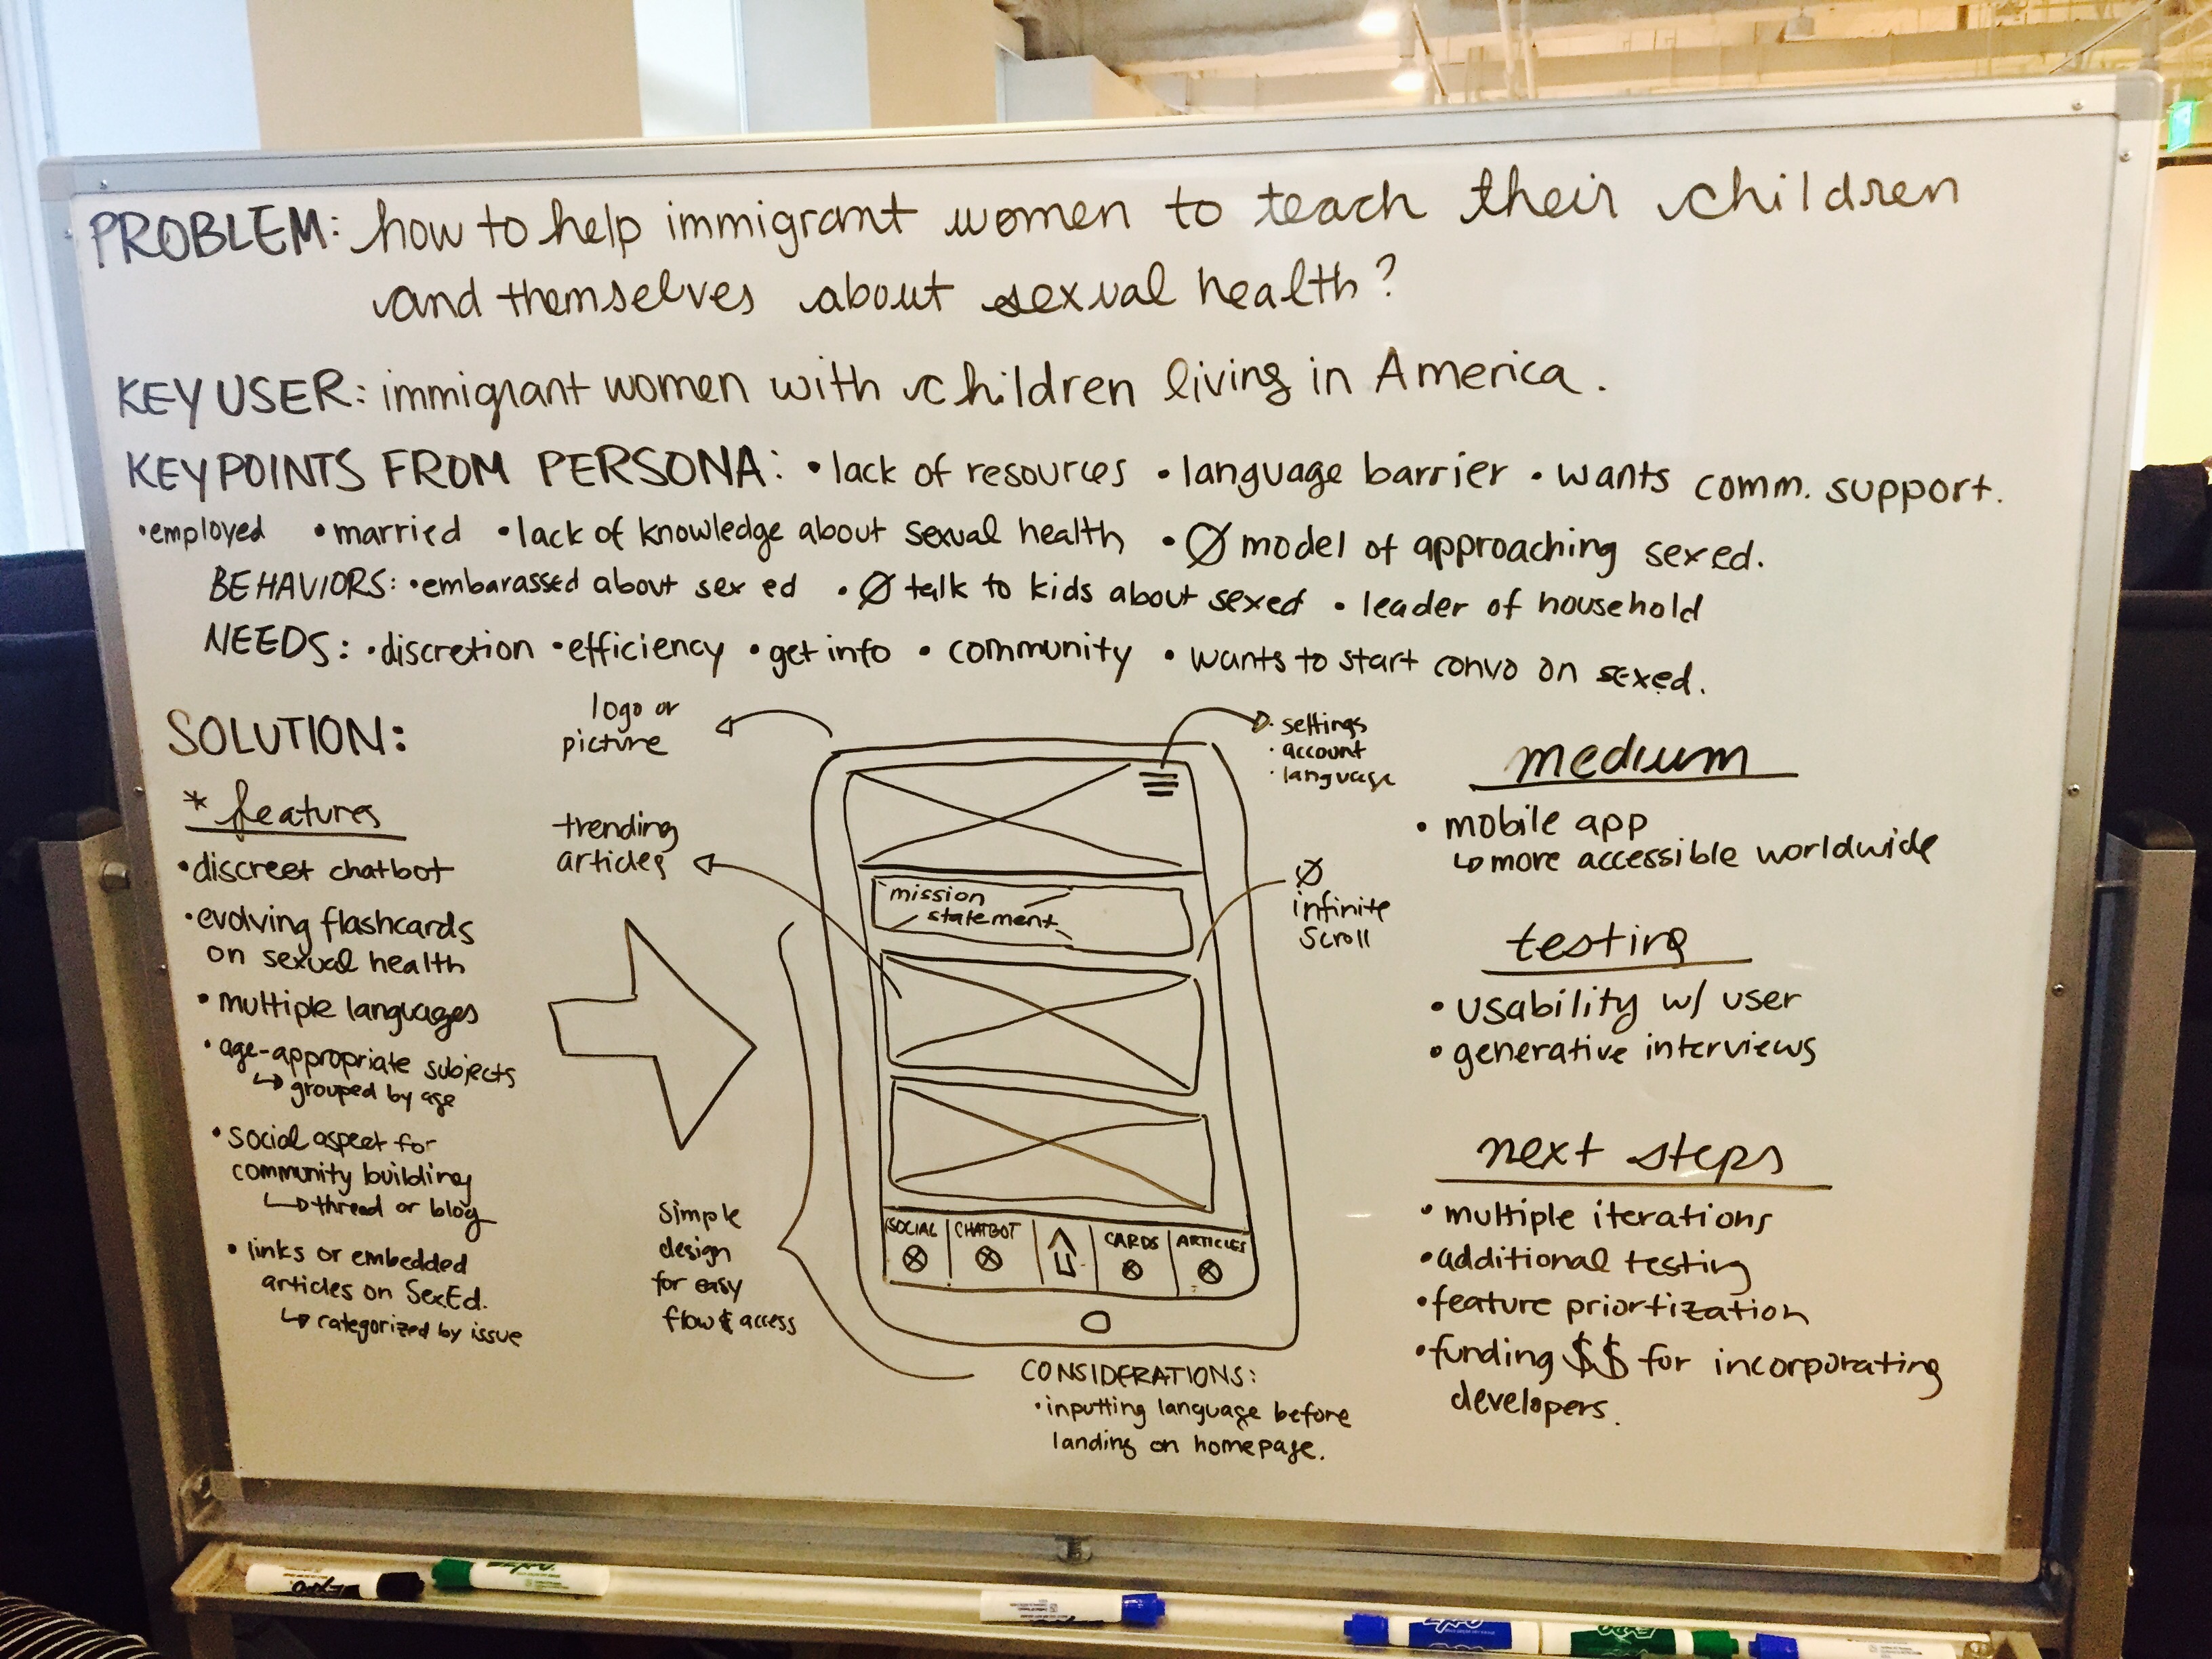 PROBLEM: how to help immigrant women to teach their children
and themselves about sexual health?
KEY USER: immigrant women with children living in America.
KEY POINTS FROM PERSONA: • lack of resources • language barrier • wants comm. support.
• employed • married • lack of knowledge about sexual health • Ø model of approaching sex ed.
BEHAVIORS: • embarassed about sex ed • Ø talk to kids about sex ed • leader of household
NEEDS: • discretion • efficiency • get info • community • wants to start convo on sex ed.
SOLUTION:
* features
• discreet chatbot
• evolving flashcards
on sexual health
• multiple languages
• age-appropriate subjects
↳ grouped by age
• social aspect for
community building
↳ thread or blog
• links or embedded
articles on SexEd.
↳ categorized by issue
logo or
picture
trending
articles
simple
design
for easy
flow & access
• settings
• account
• language
mission
statement
Ø
infinite
scroll
SOCIAL CHATBOT CARDS ARTICLES
CONSIDERATIONS:
• inputting language before
landing on homepage.
medium
• mobile app
↳ more accessible worldwide
testing
• usability w/ user
• generative interviews
next steps
• multiple iterations
• additional testing
• feature priortization
• funding $$ for incorporating
developers.
EXPO